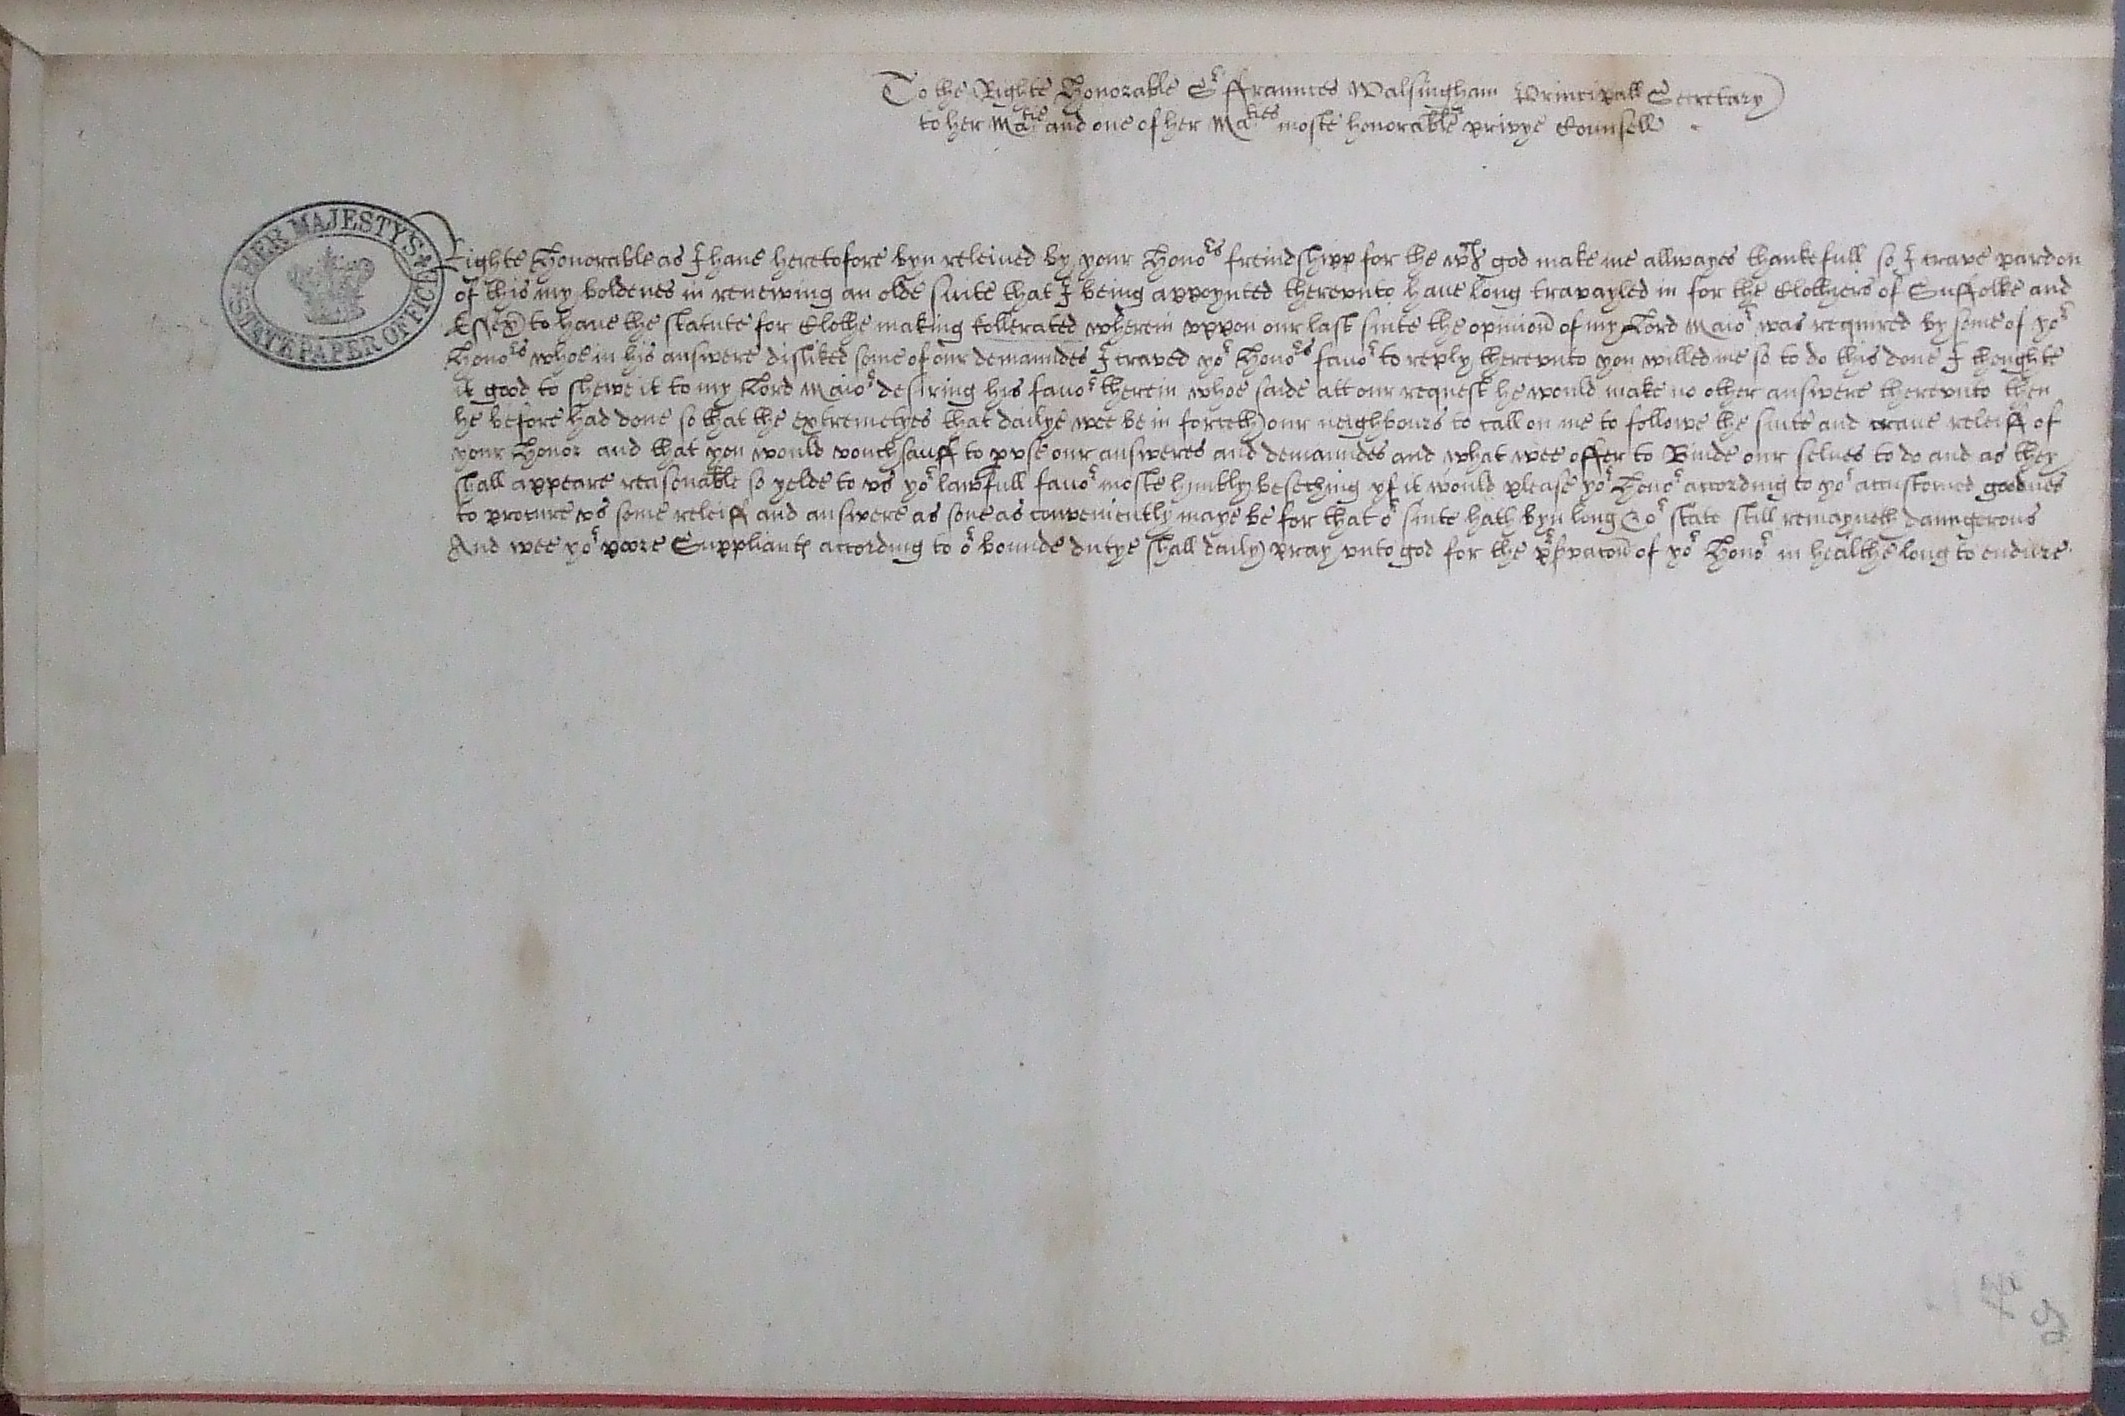 To the Righte Honorable Sr ffraunces Walsingham Principall Secretary
to her Matie and one of her Maties moste honorable privye Counsell
HER MAJESTY'S
STATE PAPER OFFICE
Righte Honorable as I haue heretofore byn releiued by your Honors freindshipp for the wch god make me allwayes thankefull so I craue pardon
of this my boldenes in renewing an olde suite that I being appoynted therevnto haue long travayled in for the Clothyers of Suffolke and
Essex to haue the statute for Clothe making tollerated wherein vppon our last suite the opinion of my Lord Maior was required by some of yor
Honors whoe in his answere disliked some of our demaundes I craved yor Honors favor to reply therevnto you willed me so to do this done I thoughte
it good to shewe it to my Lord Maior desiring his favor therein whoe saide att our request he would make no other answere therevnto then
he before had done so that the extremetyes that dailye wee be in forceth our neighbours to call on me to followe the suite and craue releiff of
your Honor and that you would vouchsauff to pvse our answeres and demaundes and what wee offer to Binde our selues to do and as they
shall appeare reasonable so yelde to vs yor lawfull favor moste humbly beseching yf it would please yor Honor according to yor accustomed goodnes
to procure vs some releiff and answere as sone as conveniently maye be for that or suite hath byn long & or state still remayneth daungerous
And wee yor poore Suppliantes according to or bounde dutye shall daily pray vnto god for the prservacon of yor Honor in healthe long to endure.